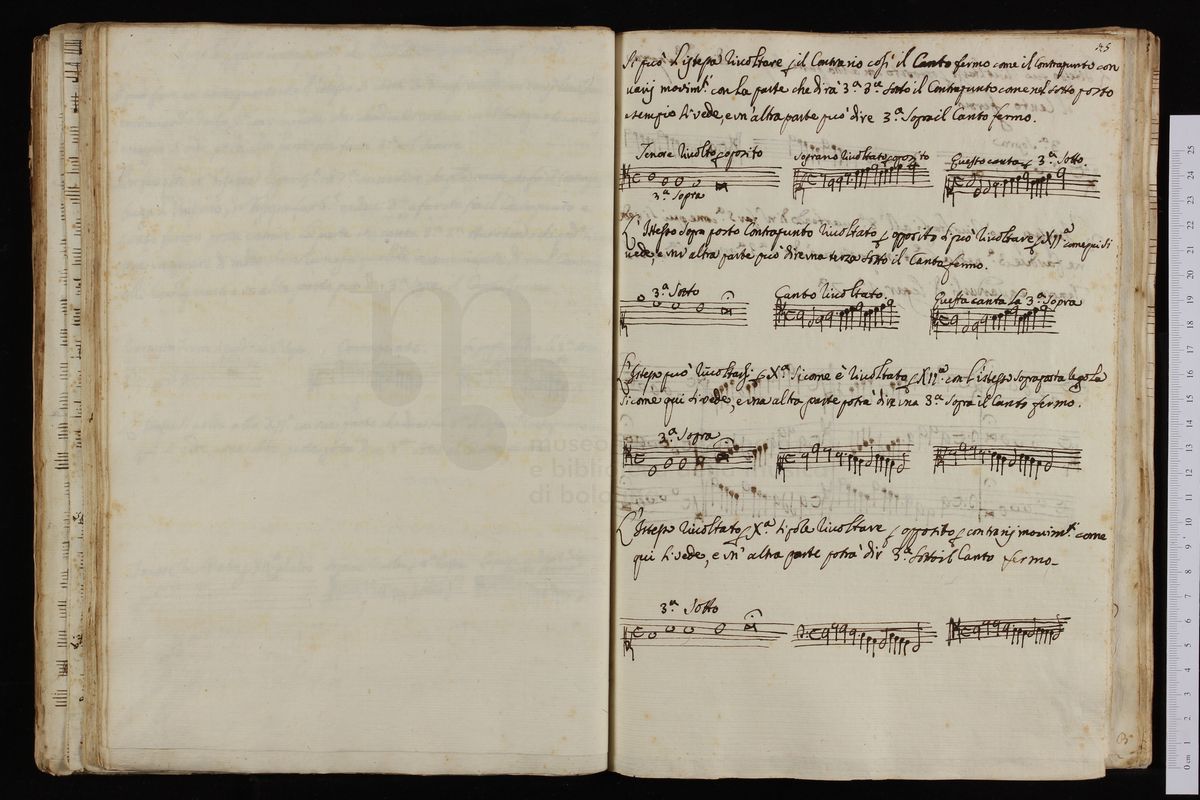 Si può L'istesso rivoltare il Contrario così il Canto fermo come il Contrapunto con
varij movim.ti con La parte che dirà 3.a 3.a sotto il Contrapunto come nel sotto posto
esempio si vede, e un'altra parte può dire 3.a Sopra il Canto fermo.
Tenore rivolto opposito
Soprano rivoltato opposito
Questo canta 3.a Sotto
3.a Sopra
L'Istesso sopra posto Contrapunto rivoltato opposito si può rivoltare XII.a come qui si
vede, e un'altra parte può dire una terza sotto il Canto fermo.
3.a Sotto
Canto rivoltato
Questa canta La 3.a Sopra
L'istesso può rivoltarsi X.a Sicome è rivoltato XII.a con l'istesso sopraposta
Sicome qui si vede, e una altra parte potrà dir una 3.a Sopra il Canto fermo.
3.a Sopra
museo
e biblio
di bolo
L'Istesso rivoltato X.a si pole rivoltare opposito contrarij movim.ti come
qui si vede, e un'altra parte potrà dir 3.a sotto il Canto fermo
3.a Sotto
0 cm 1 2 3 4 5 6 7 8 9 10 11 12 13 14 15 16 17 18 19 20 21 22 23 24 25